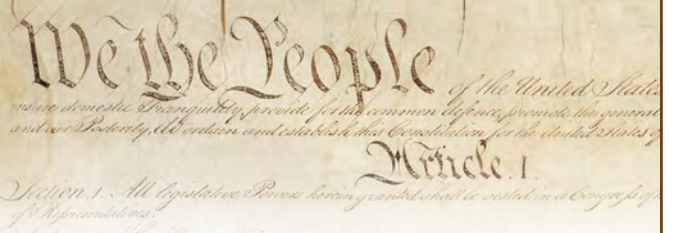 We the People of the United States
insure domestic Tranquility, provide for the common defence, promote the general
and our Posterity, do ordain and establish this Constitution for the United States of
Article. I.
Section. 1. All legislative Powers herein granted shall be vested in a Congress of
of Representatives.